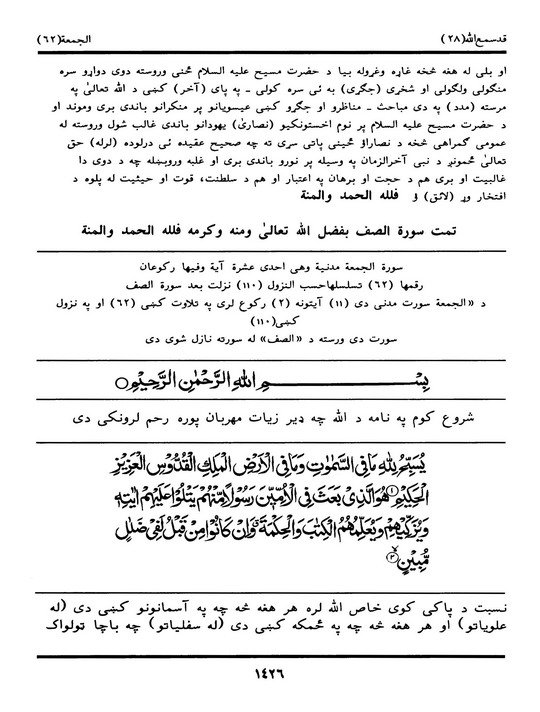 قدسمع الله (٢٨)
الجمعة (٦٢)
او بلی له هغه څخه غاړه وغروله بیا د حضرت مسیح علیه السلام ځنی وروسته دوی دواړو سره
منګولی ولګولی او شخړی (جګړی) به ئی سره کولی ـ په پای (آخر) کښی د الله تعالیٰ په
مرسته (مدد) په دی مباحث ـ مناظرو او جګړو کښی عیسویانو پر منکرانو باندی بری وموند او
د حضرت مسیح علیه السلام پر نوم اخستونکیو (نصاریٰ) یهودانو باندی غالب شول وروسته له
عمومی ګمراهی څخه د نصاراؤ ځینی پاتی سړی ته چه صحیح عقیده ئی درلوده (لرله) حق
تعالیٰ ځمونږ د نبی آخرالزمان په وسیله پر نورو باندی بری او غلبه وروښله چه د دوی دا
غالبیت او بری هم د حجت او برهان په اعتبار او هم د سلطنت، قوت او حیثیت له پلوه د
افتخار وړ (لائق) ؤ فلله الحمد والمنة
تمت سورة الصف بفضل الله تعالیٰ ومنه وکرمه فلله الحمد والمنة
سورة الجمعة مدنیة وهی احدی عشرة آیة وفیها رکوعان
رقمها (٦٢) تسلسلها حسب النزول (١١٠) نزلت بعد سورة الصف
د «الجمعة سورت مدنی دی (١١) آیتونه (٢) رکوع لری په تلاوت کښی (٦٢) او په نزول
کښی (١١٠)
سورت دی ورسته د «الصف» له سورته نازل شوی دی
بِسْــــمِ اللهِ الرَّحْمٰنِ الرَّحِیْمِ
شروع کوم په نامه د الله چه ډیر زیات مهربان پوره رحم لرونکی دی
یُسَبِّحُ لِلّٰهِ مَا فِی السَّمٰوٰتِ وَمَا فِی الْاَرْضِ الْمَلِكِ الْقُدُّوْسِ الْعَزِیْزِ
الْحَكِیْمِ ۝١ هُوَ الَّذِیْ بَعَثَ فِی الْاُمِّیّٖنَ رَسُوْلًا مِّنْهُمْ یَتْلُوْا عَلَیْهِمْ اٰیٰتِهٖ
وَیُزَكِّیْهِمْ وَیُعَلِّمُهُمُ الْكِتٰبَ وَالْحِكْمَةَ وَاِنْ كَانُوْا مِنْ قَبْلُ لَفِیْ ضَلٰلٍ
مُّبِیْنٍ ۝٢
نسبت د پاکی کوی خاص الله لره هر هغه څه چه په آسمانونو کښی دی (له
علویاتو) او هر هغه څه چه په ځمکه کښی دی (له سفلیاتو) چه باچا ټولواک
١٤٢٦